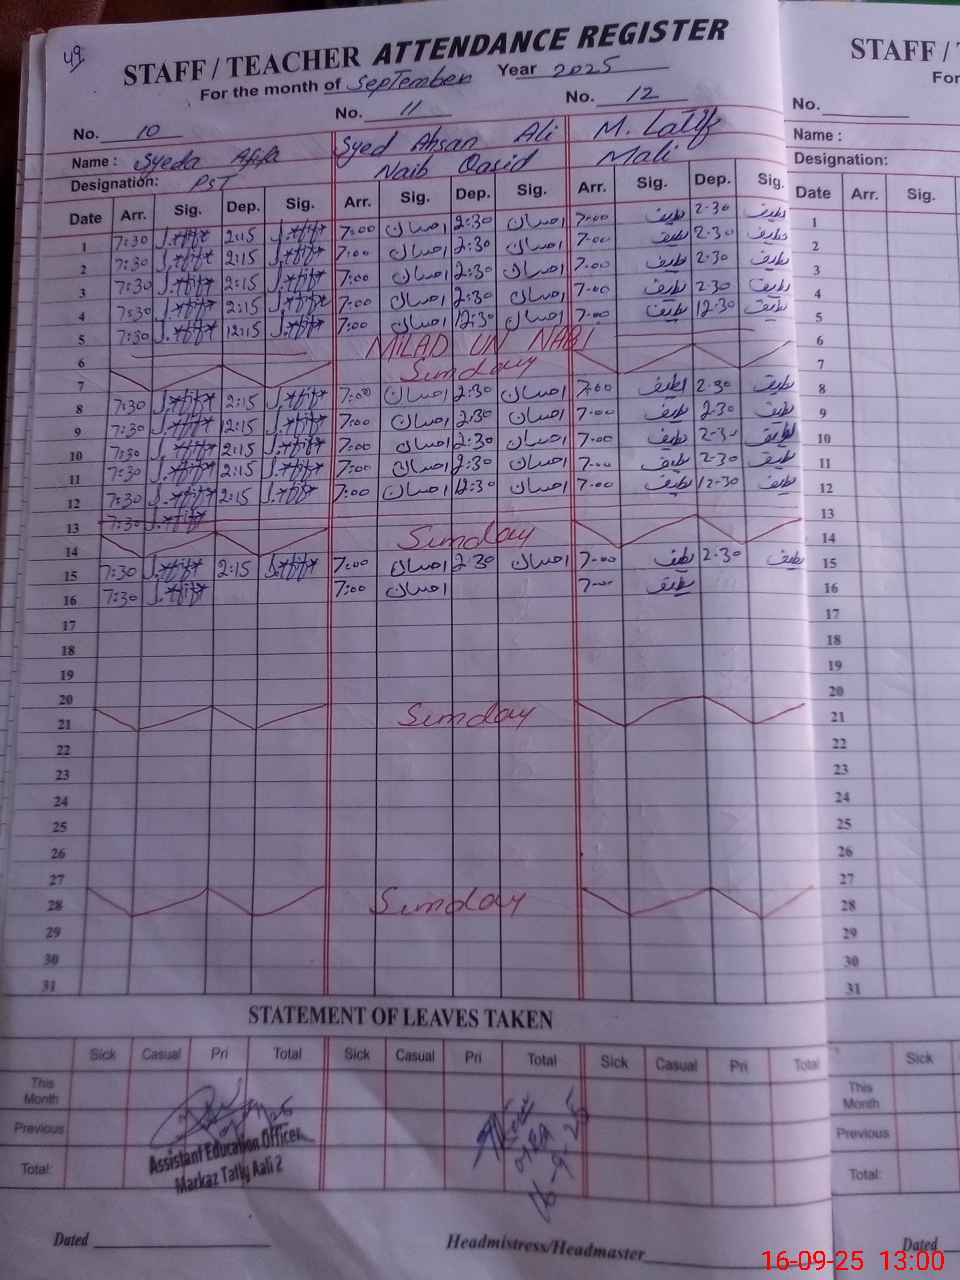 49
STAFF / TEACHER ATTENDANCE REGISTER
For the month of September Year 2025
No. 10 No. 11 No. 12
Name : Syeda Afifa Syed Ahsan Ali M. Latif
Designation: PST Naib Qasid Mali
Date Arr. Sig. Dep. Sig. Arr. Sig. Dep. Sig. Arr. Sig. Dep. Sig.
1 7:30 2:15 7:00 احسان 2:30 احسان 7-00 لطیف 2-30 لطیف
2 7:30 2:15 7:00 احسان 2:30 احسان 7-00 لطیف 2-30 لطیف
3 7:30 2:15 7:00 احسان 2:30 احسان 7-00 لطیف 2-30 لطیف
4 7:30 2:15 7:00 احسان 2:30 احسان 7-00 لطیف 2-30 لطیف
5 7:30 12:15 7:00 احسان 12:30 احسان 7-00 لطیف 12-30 لطیف
6 MILAD UN NABI
7 Sunday
8 7:30 2:15 7:00 احسان 2:30 احسان 7-00 لطیف 2-30 لطیف
9 7:30 12:15 7:00 احسان 2:30 احسان 7-00 لطیف 2-30 لطیف
10 7:30 2:15 7:00 احسان 2:30 احسان 7-00 لطیف 2-30 لطیف
11 7:30 2:15 7:00 احسان 2:30 احسان 7-00 لطیف 2-30 لطیف
12 7:30 2:15 7:00 احسان 12:30 احسان 7-00 لطیف 12-30 لطیف
13 7:30
14 Sunday
15 7:30 2:15 7:00 احسان 2:30 احسان 7-00 لطیف 2-30 لطیف
16 7:30 7:00 احسان 7-00 لطیف
17
18
19
20
21 Sunday
22
23
24
25
26
27
28 Sunday
29
30
31
STATEMENT OF LEAVES TAKEN
Sick Casual Pri Total Sick Casual Pri Total Sick Casual Pri Total
This Month
Previous
Total:
Assistant Education Officer
Markaz Tatly Aali 2
16-9-25
Dated Headmistress/Headmaster
STAFF / T
For
No.
Name :
Designation:
Date Arr. Sig.
1
2
3
4
5
6
7
8
9
10
11
12
13
14
15
16
17
18
19
20
21
22
23
24
25
26
27
28
29
30
31
Sick
This Month
Previous
Total:
Dated
16-09-25 13:00